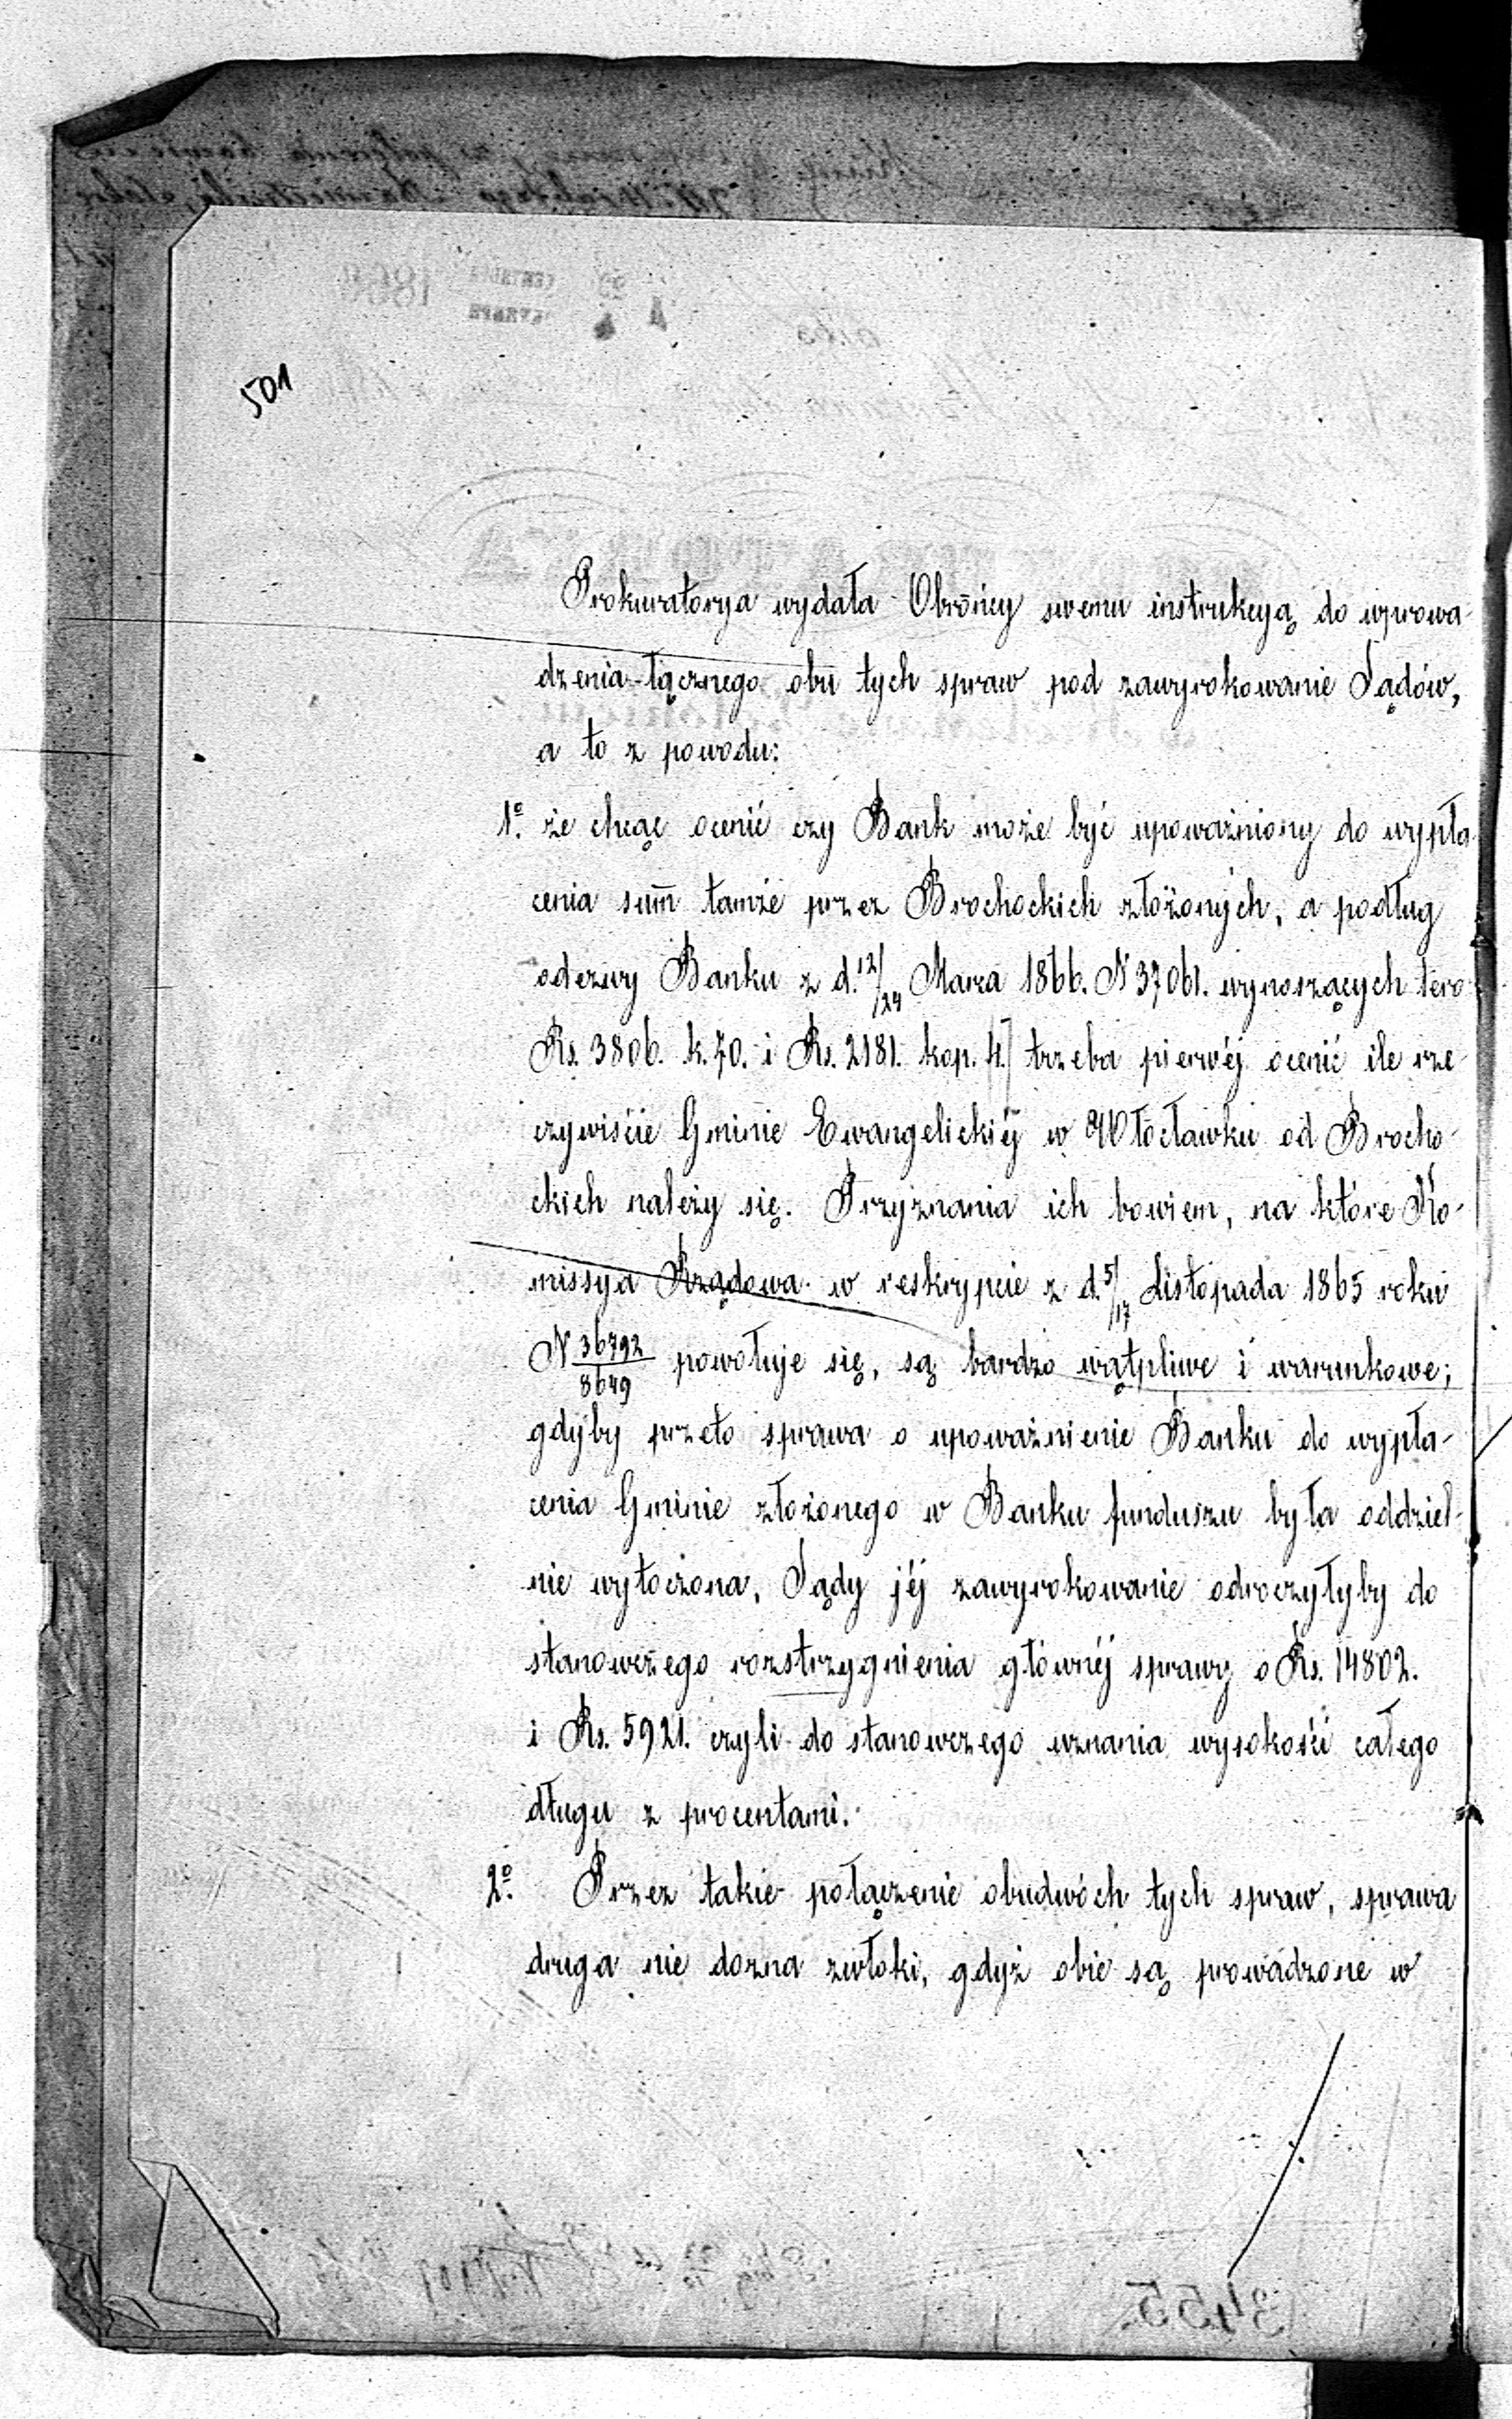 501
Prokuratorya wydała Obrońcy swemu instrukcyą do wprowa-
dzenia łącznego obu tych spraw pod zawyrokowanie Sądów,
a to z powodu:
1º. że chcąc ocenić czy Bank może być upoważniony do wypła-
cenia summ tamże przez Brochockich złożonych, a podług
odezwy Banku z d. 12/24 Marca 1866. N 37061. wynoszących
Rs. 3806. k. 70. i Rs. 2181. kop. 4. trzeba pierwéj ocenić ile rze-
czywiście Gminie Ewangelickiéj w Włocławku od Brocho-
ckich należy się. Przyznania ich bowiem, na które Ko-
missya Rządowa w reskrypcie z d. 5/17 Listopada 1865 roku
N 36792/8649 powołuje się, są bardzo wątpliwe i warunkowe;
gdyby przeto sprawa o upoważnienie Banku do wypła-
cenia Gminie złożonego w Banku funduszu była oddziel-
nie wytoczona, Sądy jéj zawyrokowanie odroczyłyby do
stanowczego rozstrzygnienia głównéj sprawy o Rs. 14802.
i Rs. 5921. czyli do stanowczego uznania wysokości całego
długu z procentami.
2º. Przez takie połączenie obudwóch tych spraw, sprawa
druga nie dozna zwłoki, gdyż obie są prowadzone w